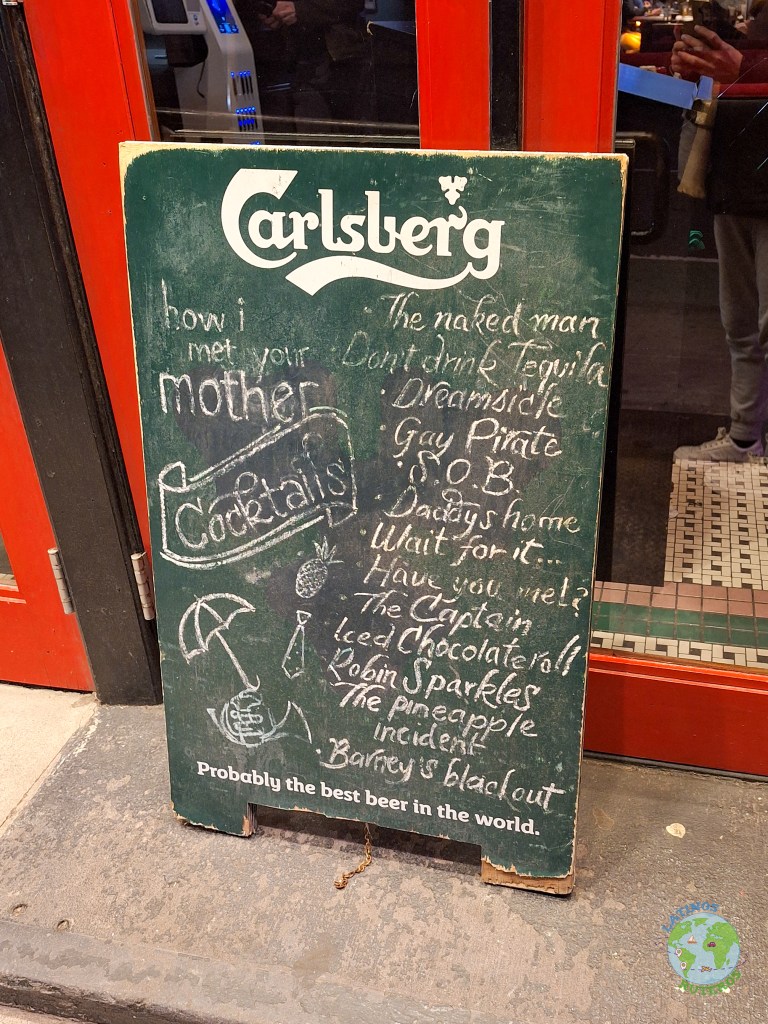 Carlsberg
how i
met your
mother
Cocktails
· The naked man
· Don't drink Tequila
· Dreamsicle
· Gay Pirate
· S.O.B.
· Daddy's home
· Wait for it...
Have you met?
The Captain
Iced Chocolateroll
Robin Sparkles
· The pineapple
incident
· Barney's blackout
Probably the best beer in the world.
LATINOS